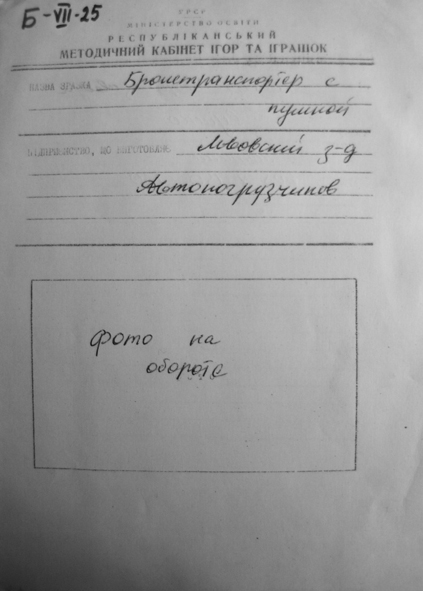 Б-VIII-25
УРСР
МІНІСТЕРСТВО ОСВІТИ
РЕСПУБЛІКАНСЬКИЙ
МЕТОДИЧНИЙ КАБІНЕТ ІГОР ТА ІГРАШОК
НАЗВА ЗРАЗКА Бронетранспортер с
пушкой
ПІДПРИЄМСТВО, ЩО ВИГОТОВЛЯЄ Львовский з-д
Автопогрузчиков
Фото на
обороте